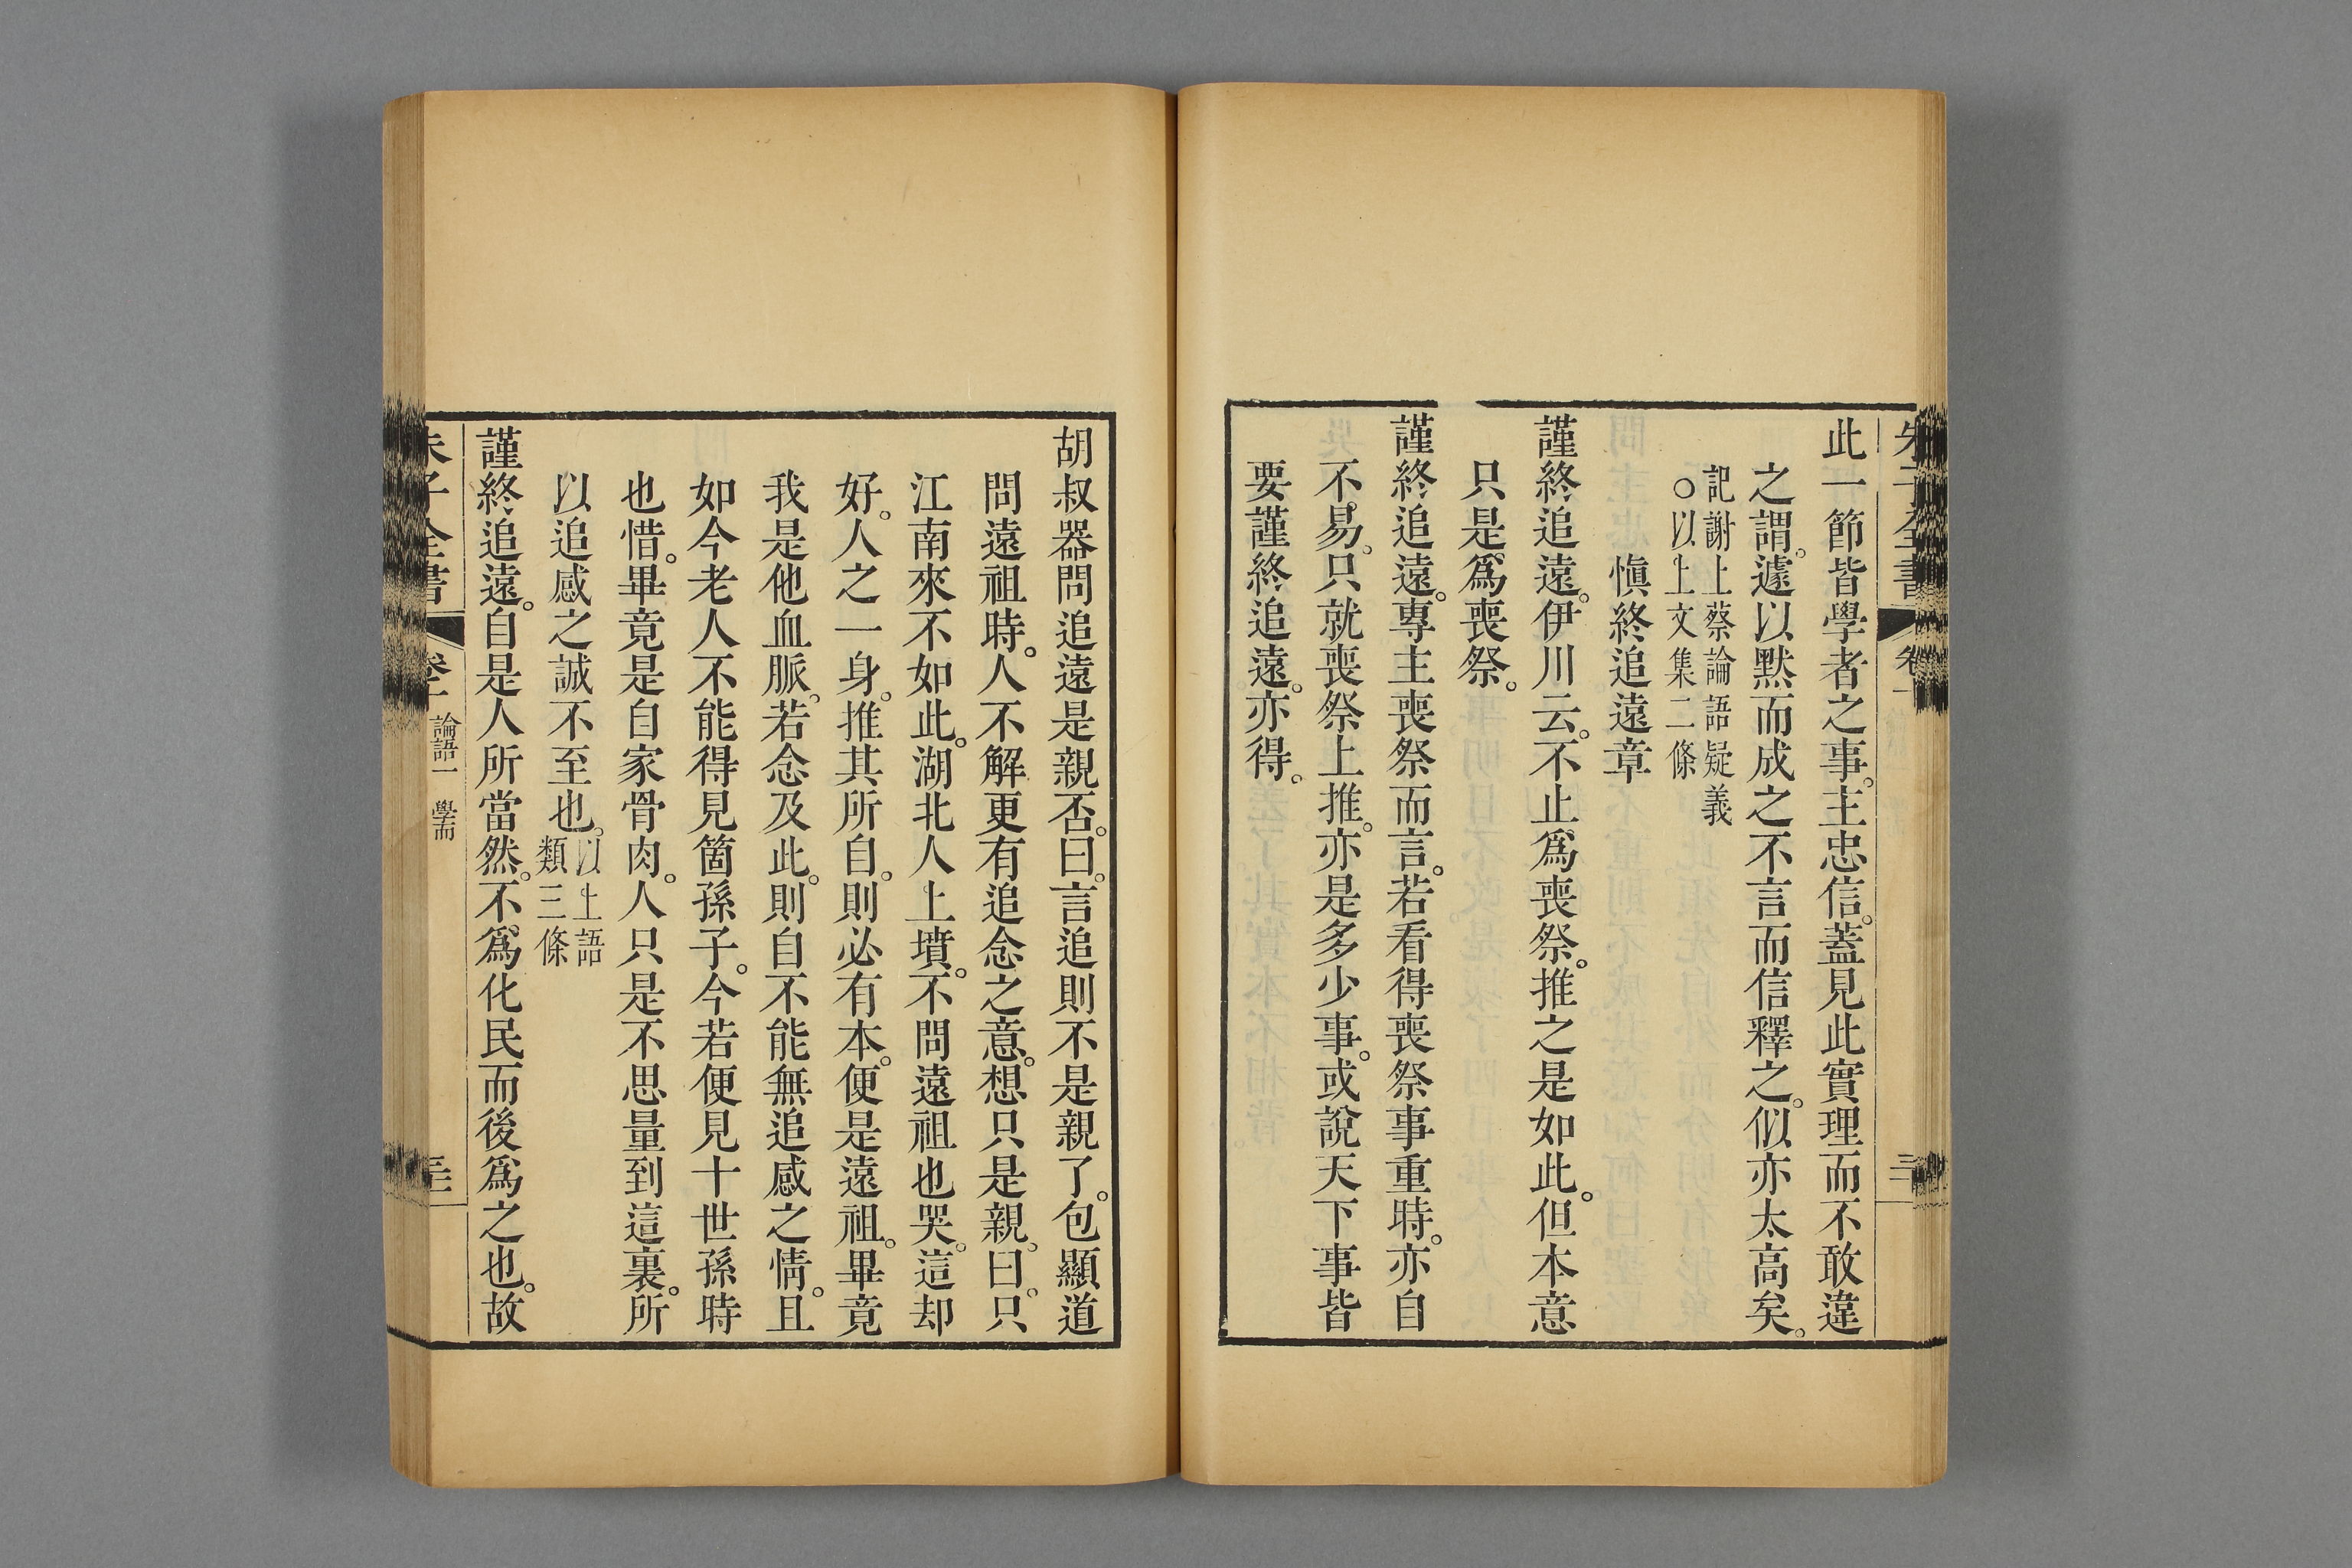 此一節皆學者之事。主忠信。蓋見此實理而不敢違
之謂。遽以默而成之不言而信釋之。似亦太高矣。
記謝上蔡論語疑義
○以上文集二條
愼終追遠章
謹終追遠。伊川云。不止爲喪祭。推之是如此。但本意
只是爲喪祭。
謹終追遠。專主喪祭而言。若看得喪祭事重時。亦自
不易。只就喪祭上推。亦是多少事。或說天下事皆
要謹終追遠。亦得。
胡叔器問追遠是親否。曰。言追則不是親了。包顯道
問遠祖時。人不解更有追念之意。想只是親。曰。只
江南來不如此。湖北人上墳。不問遠祖也哭。這却
好。人之一身。推其所自。則必有本。便是遠祖。畢竟
我是他血脈。若念及此。則自不能無追感之情。且
如今老人不能得見箇孫子。今若便見十世孫時
也惜。畢竟是自家骨肉。人只是不思量到這裏。所
以追感之誠不至也。
以上語
類三條
謹終追遠。自是人所當然。不爲化民而後爲之也。故
朱子全書
卷十
論語一
學而